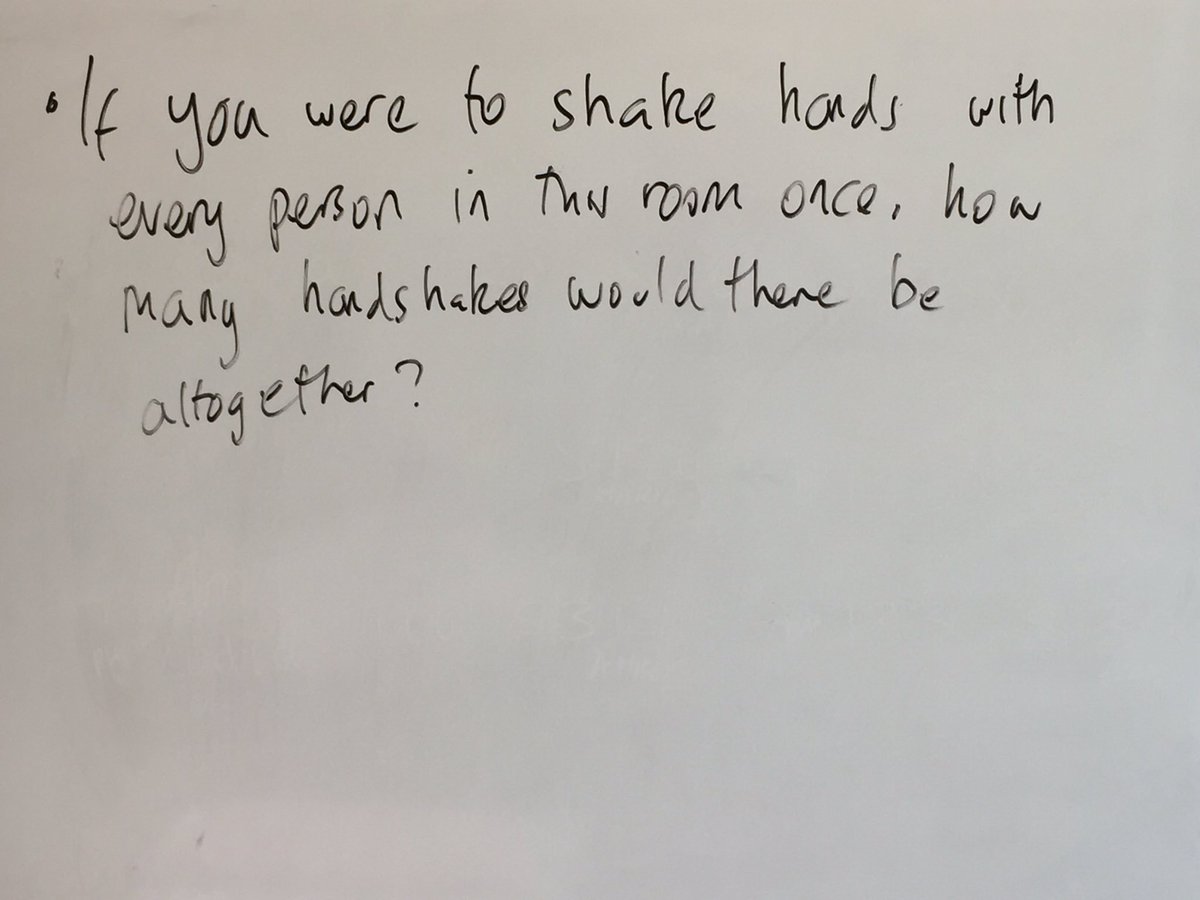 • If you were to shake hands with
every person in this room once, how
many handshakes would there be
altogether?